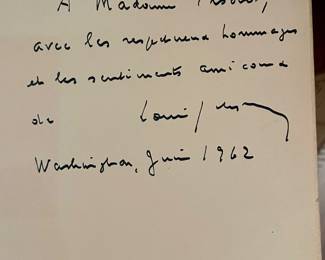 A Madame
avec les respectueux hommages
et les sentiments amicaux
de Louis
Washington, Juin 1962